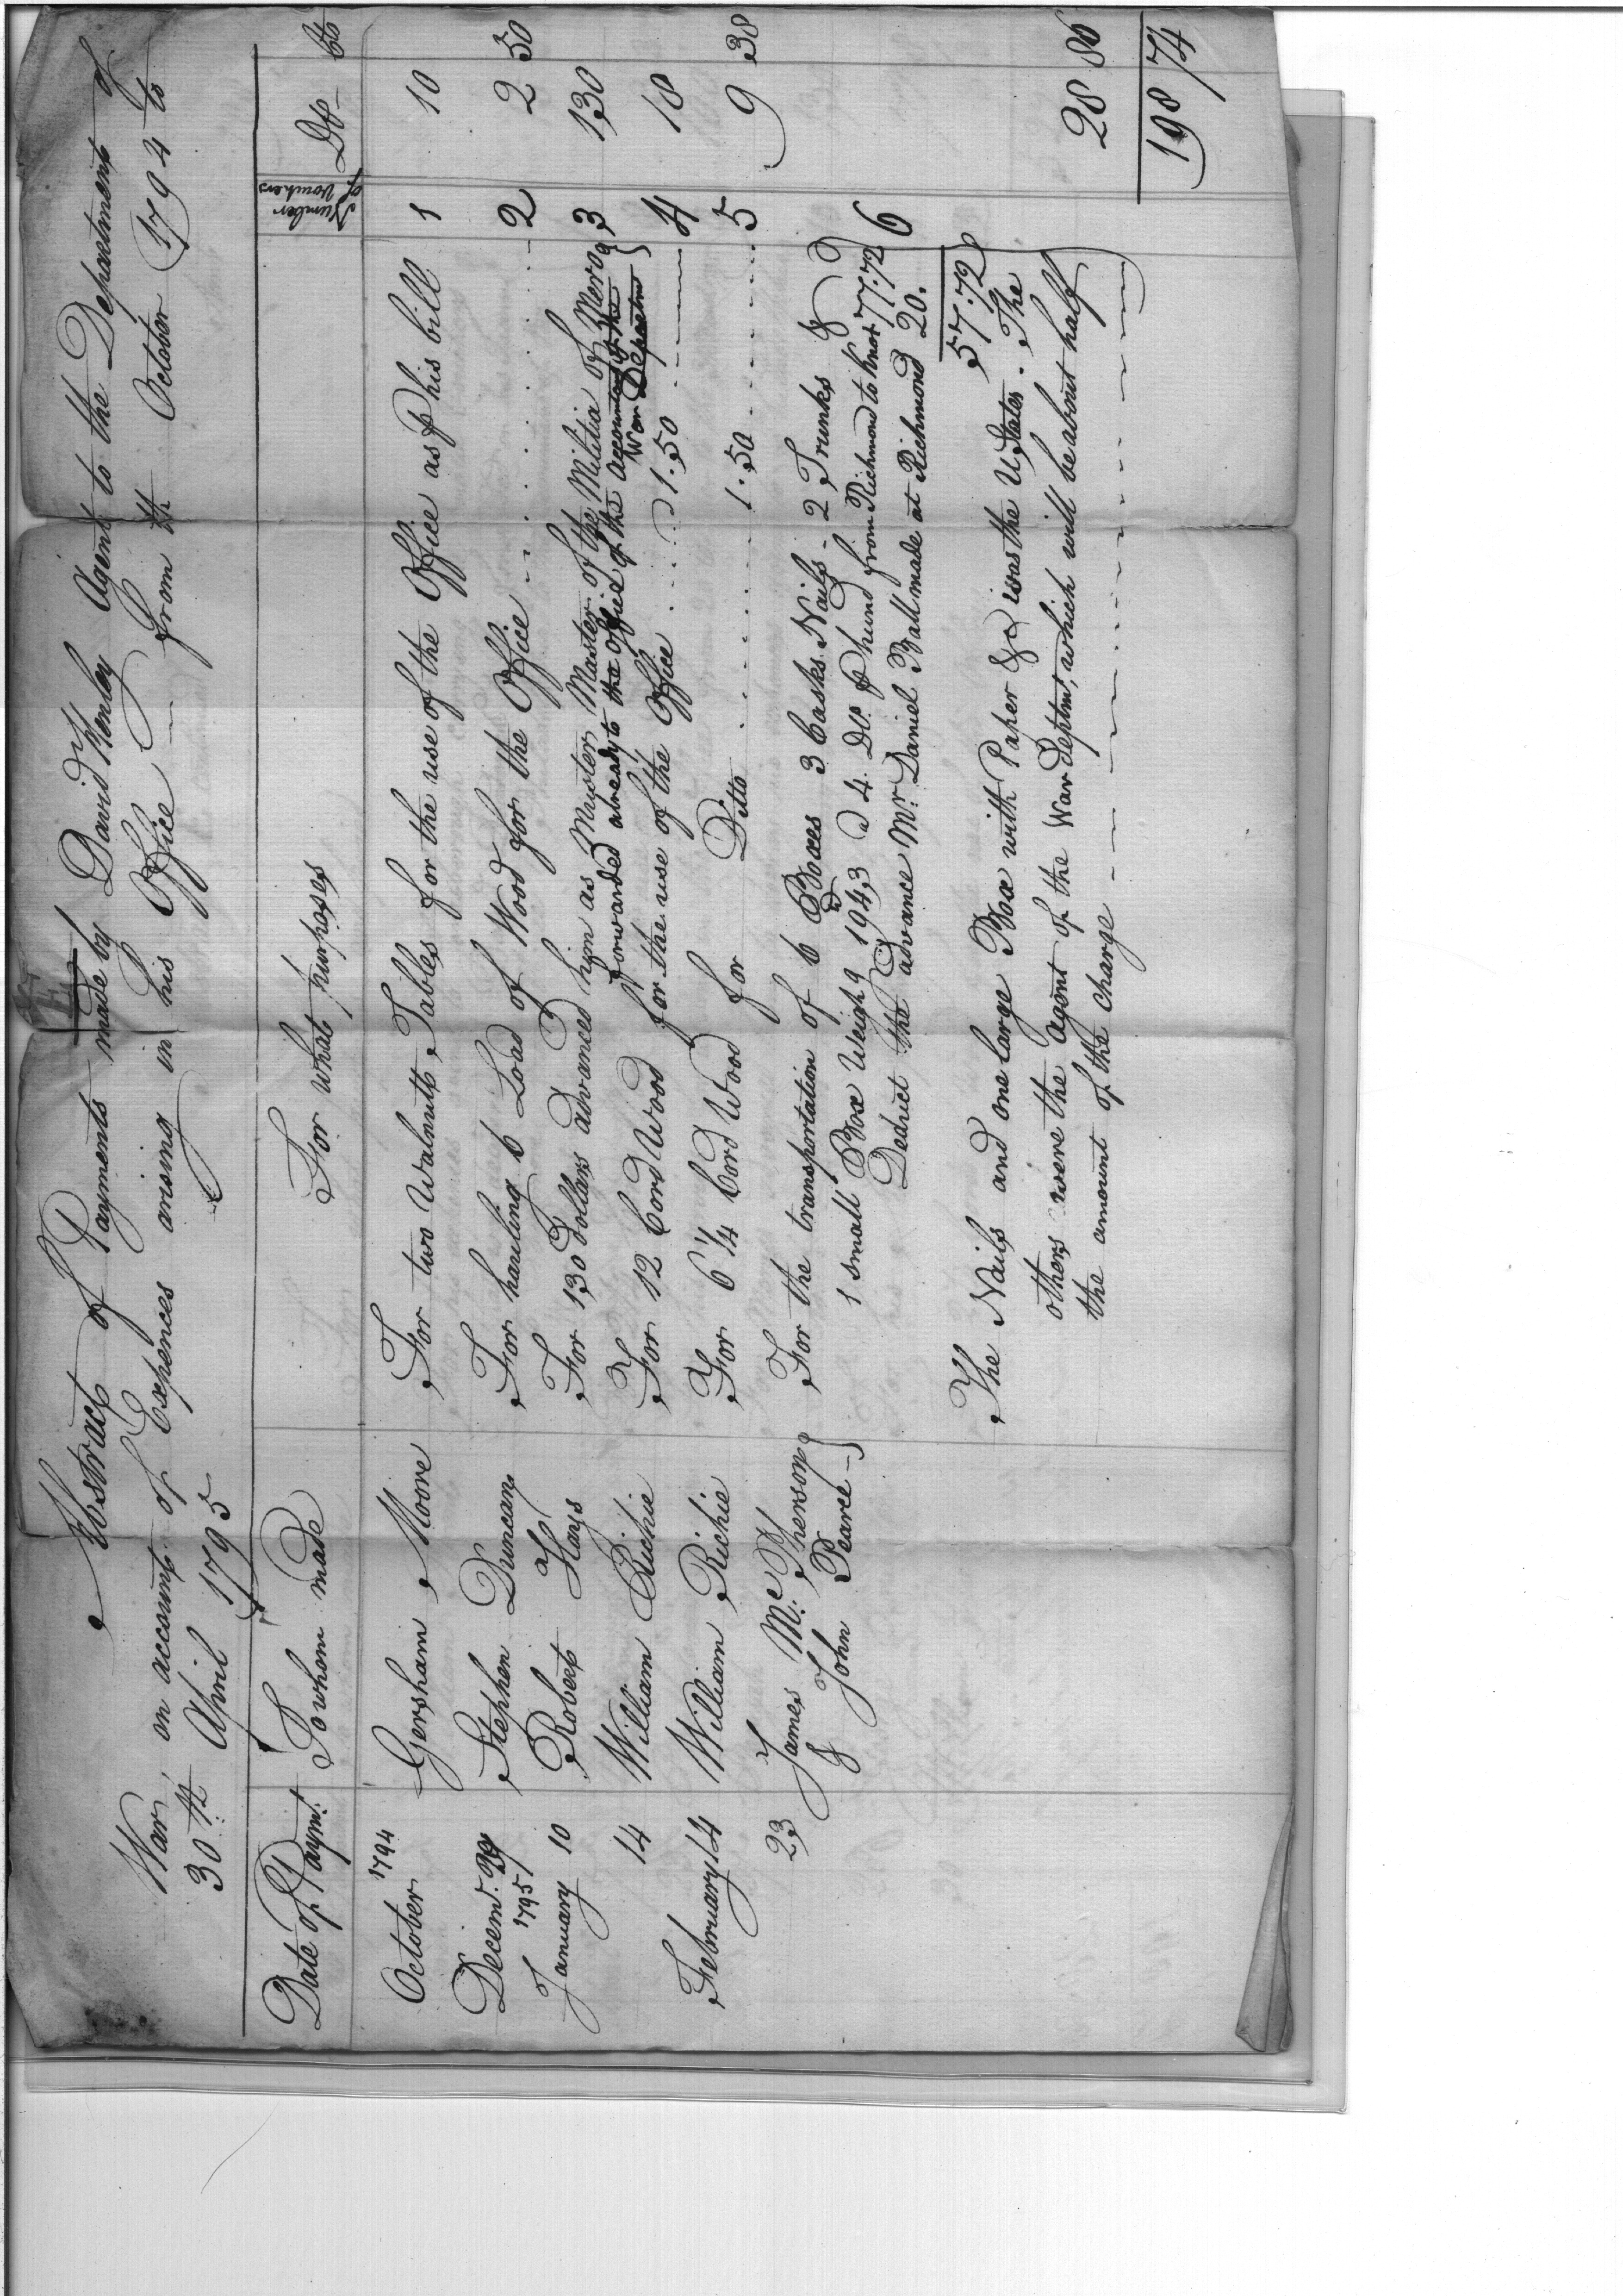 Abstract of Payments made by David Henley Agent to the Department of
War, on account of Expences arising in his Office from th October 1794 to
30th April 1795
Date of Paymt. To whom made For what purposes Number of Vouchers Drs Cts
October 1794 Gersham Moore For two Walnutt Tables for the use of the Office as p his bill 1 10
Decemr. 29 Stephen Duncan For hauling 6 Load of Wood for the Office 2 2 50
1795
January 10 Robert Hays For 130 Dollars advanced him as Muster Master of the Militia of Mero 3 130
forwarded already to the Office of the Accountant of the
War Departmt
14 William Richie For 12 Cord Wood for the use of the Office @ 1.50 4 18
February 14 William Richie For 6 1/4 Cord Wood for Ditto 1.50 5 9 38
23 James McPherson For the transportation of 6 Boxes 3 Casks Nails 2 Trunks &
& John Pearce 1 small Box Weighg 1943 @ 4 Do. p hund from Richmond to Knox 77.72 6
Deduct the advance Mr. Daniel Ball made at Richmond 20.
57.72
The Nails and one large Box with Paper &c was the U States. The
others were the Agent of the War Deptmt, which will be about half
the amount of the charge 28 86
198 74